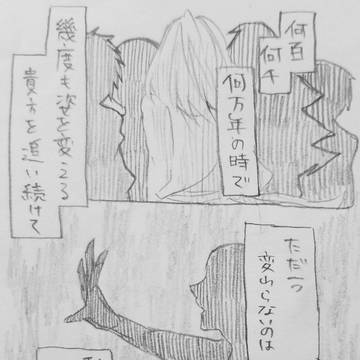 何百
何千
何万年の時で
幾度も姿を変える
貴方を追い続けて
ただ一つ
変わらないのは